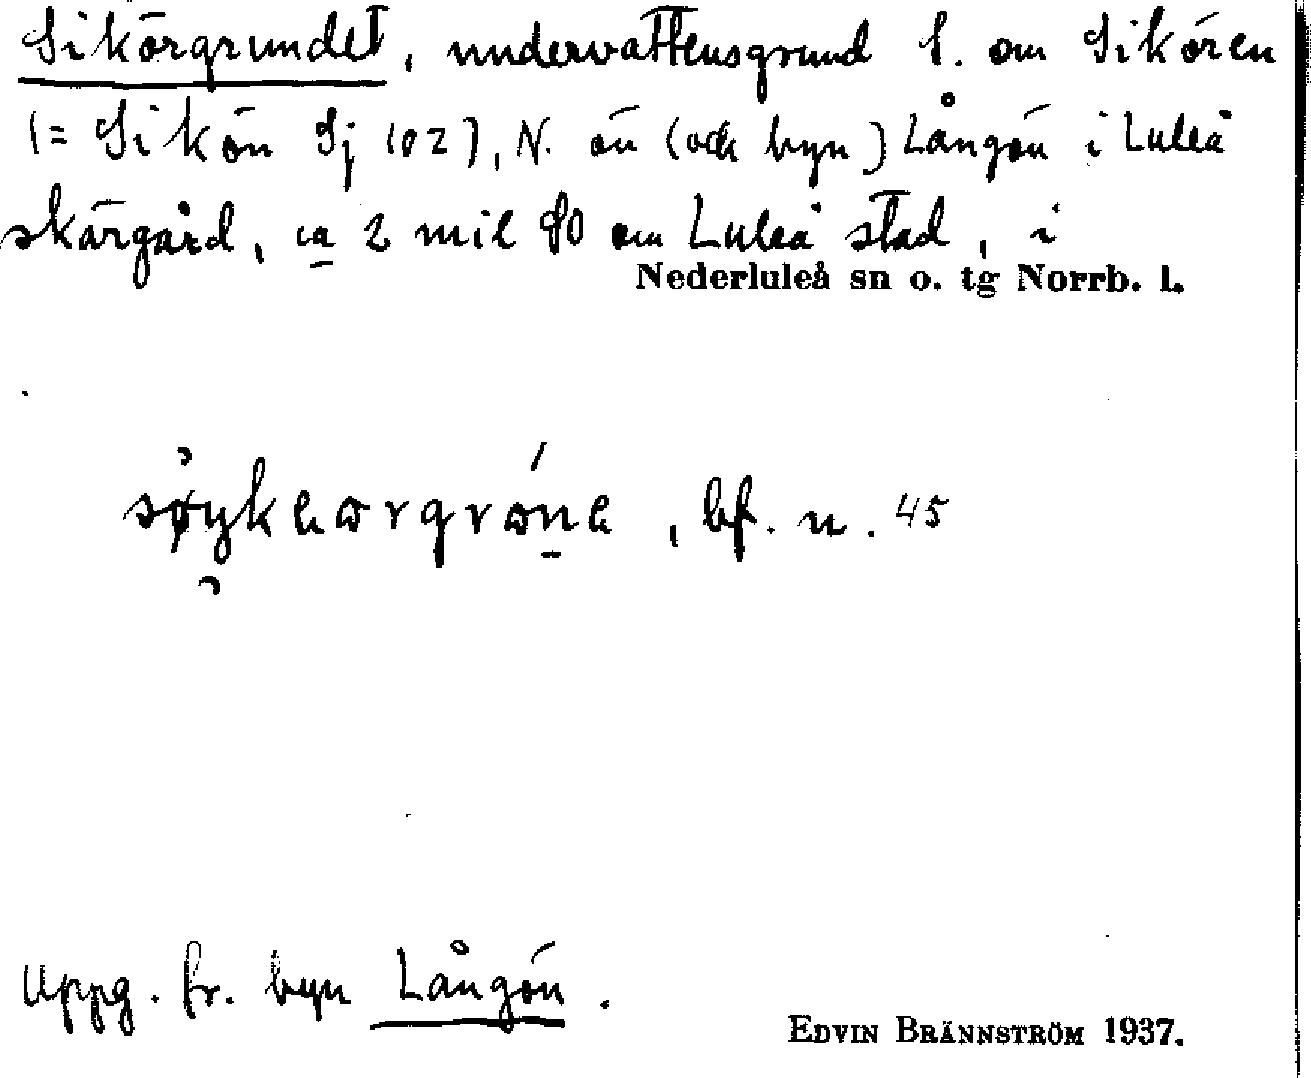 Sikörgrundet, undervattensgrund S. om Sikören
(= Sikön Sj 102), N. ön (och byn) Långön i Luleå
skärgård, ca 2 mil SO om Luleå stad, i
Nederluleå sn o. tg Norrb. l.
, bf. n. 45
Uppg. fr. byn Långön.
EDVIN BRÄNNSTRÖM 1937.